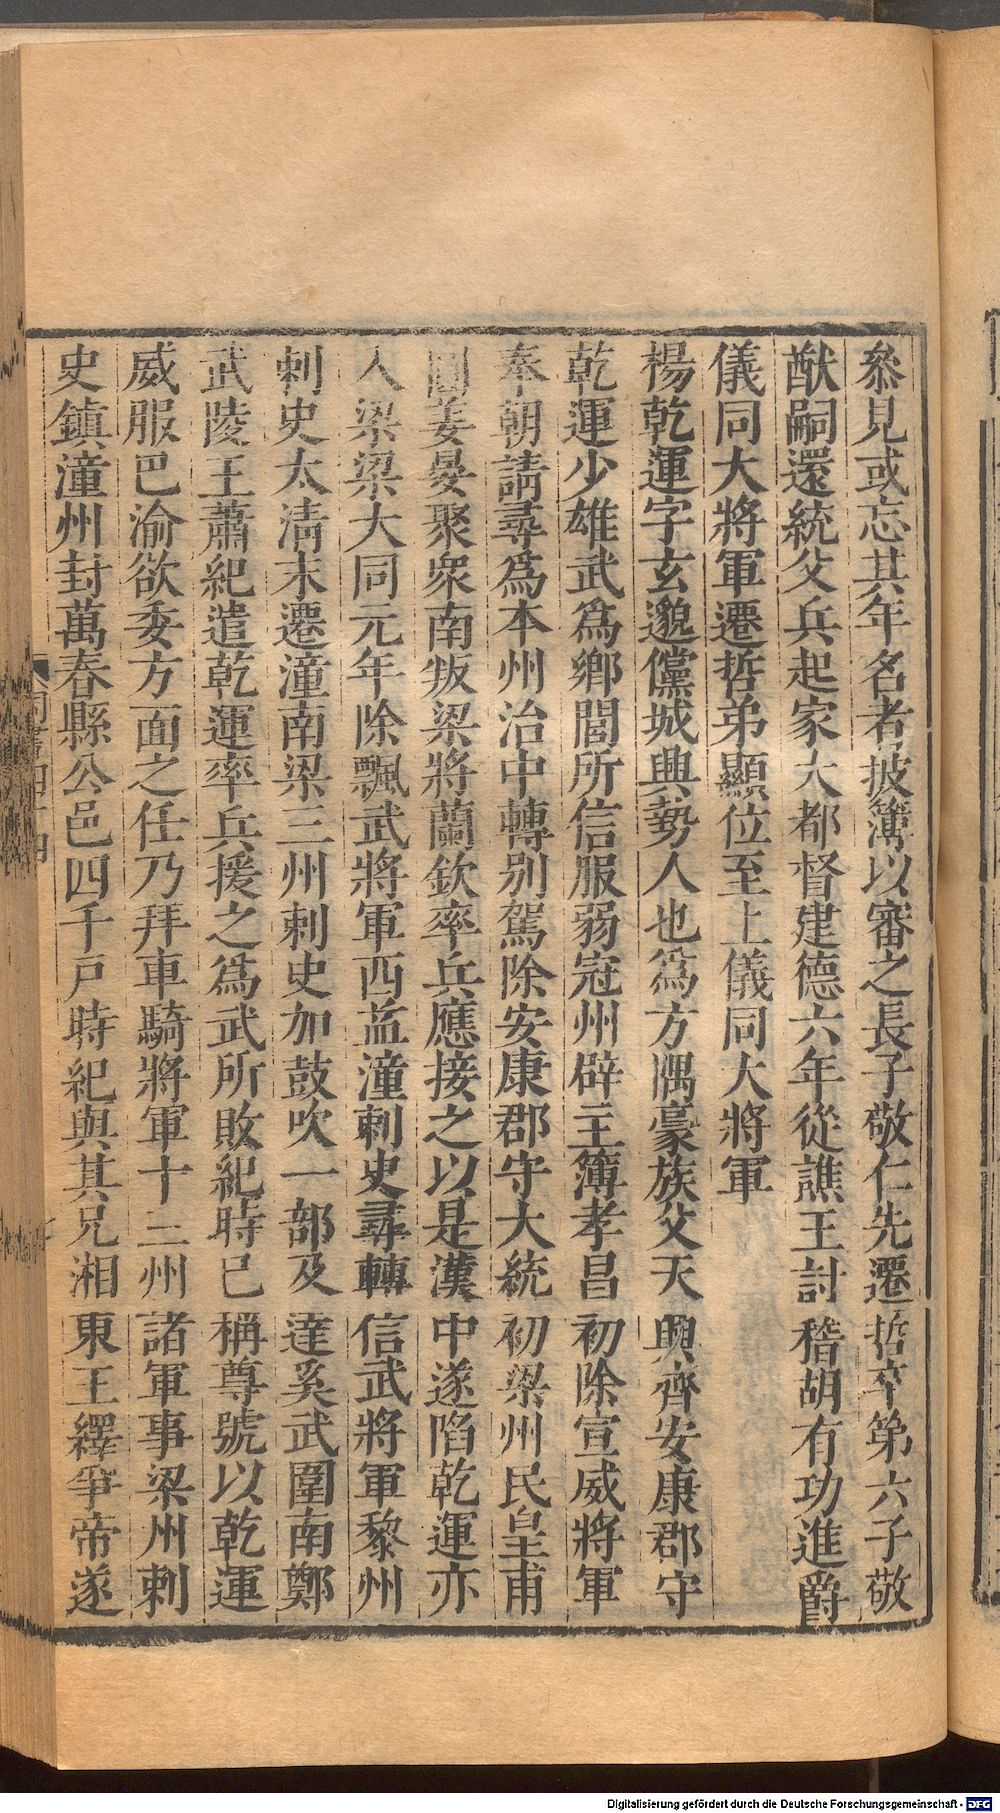 叅見或忘其年名者披簿以審之長子敬仁先遷哲卒第六子敬
猷嗣還統父兵起家大都督建德六年從譙王討稽胡有功進爵
儀同大將軍遷哲弟顯位至上儀同大將軍
楊乾運字玄邈儻城興勢人也爲方隅豪族父天興齊安康郡守
乾運少雄武爲鄉閭所信服弱冠州辟主簿孝昌初除宣威將軍
奉朝請尋爲本州治中轉别駕除安康郡守大統初梁州民皇甫
圓姜晏聚衆南叛梁將蘭欽率兵應接之以是漢中遂陷乾運亦
入梁梁大同元年除飄武將軍西益潼刺史尋轉信武將軍黎州
刺史太淸末遷潼南梁三州刺史加鼓吹一部及達奚武圍南鄭
武陵王蕭紀遣乾運率兵援之爲武所敗紀時已稱尊號以乾運
威服巴渝欲委方面之任乃拜車騎將軍十三州諸軍事梁州刺
史鎮潼州封萬春縣公邑四千戸時紀與其兄湘東王繹爭帝遂
周書四十四
七
Digitalisierung gefördert durch die Deutsche Forschungsgemeinschaft - DFG